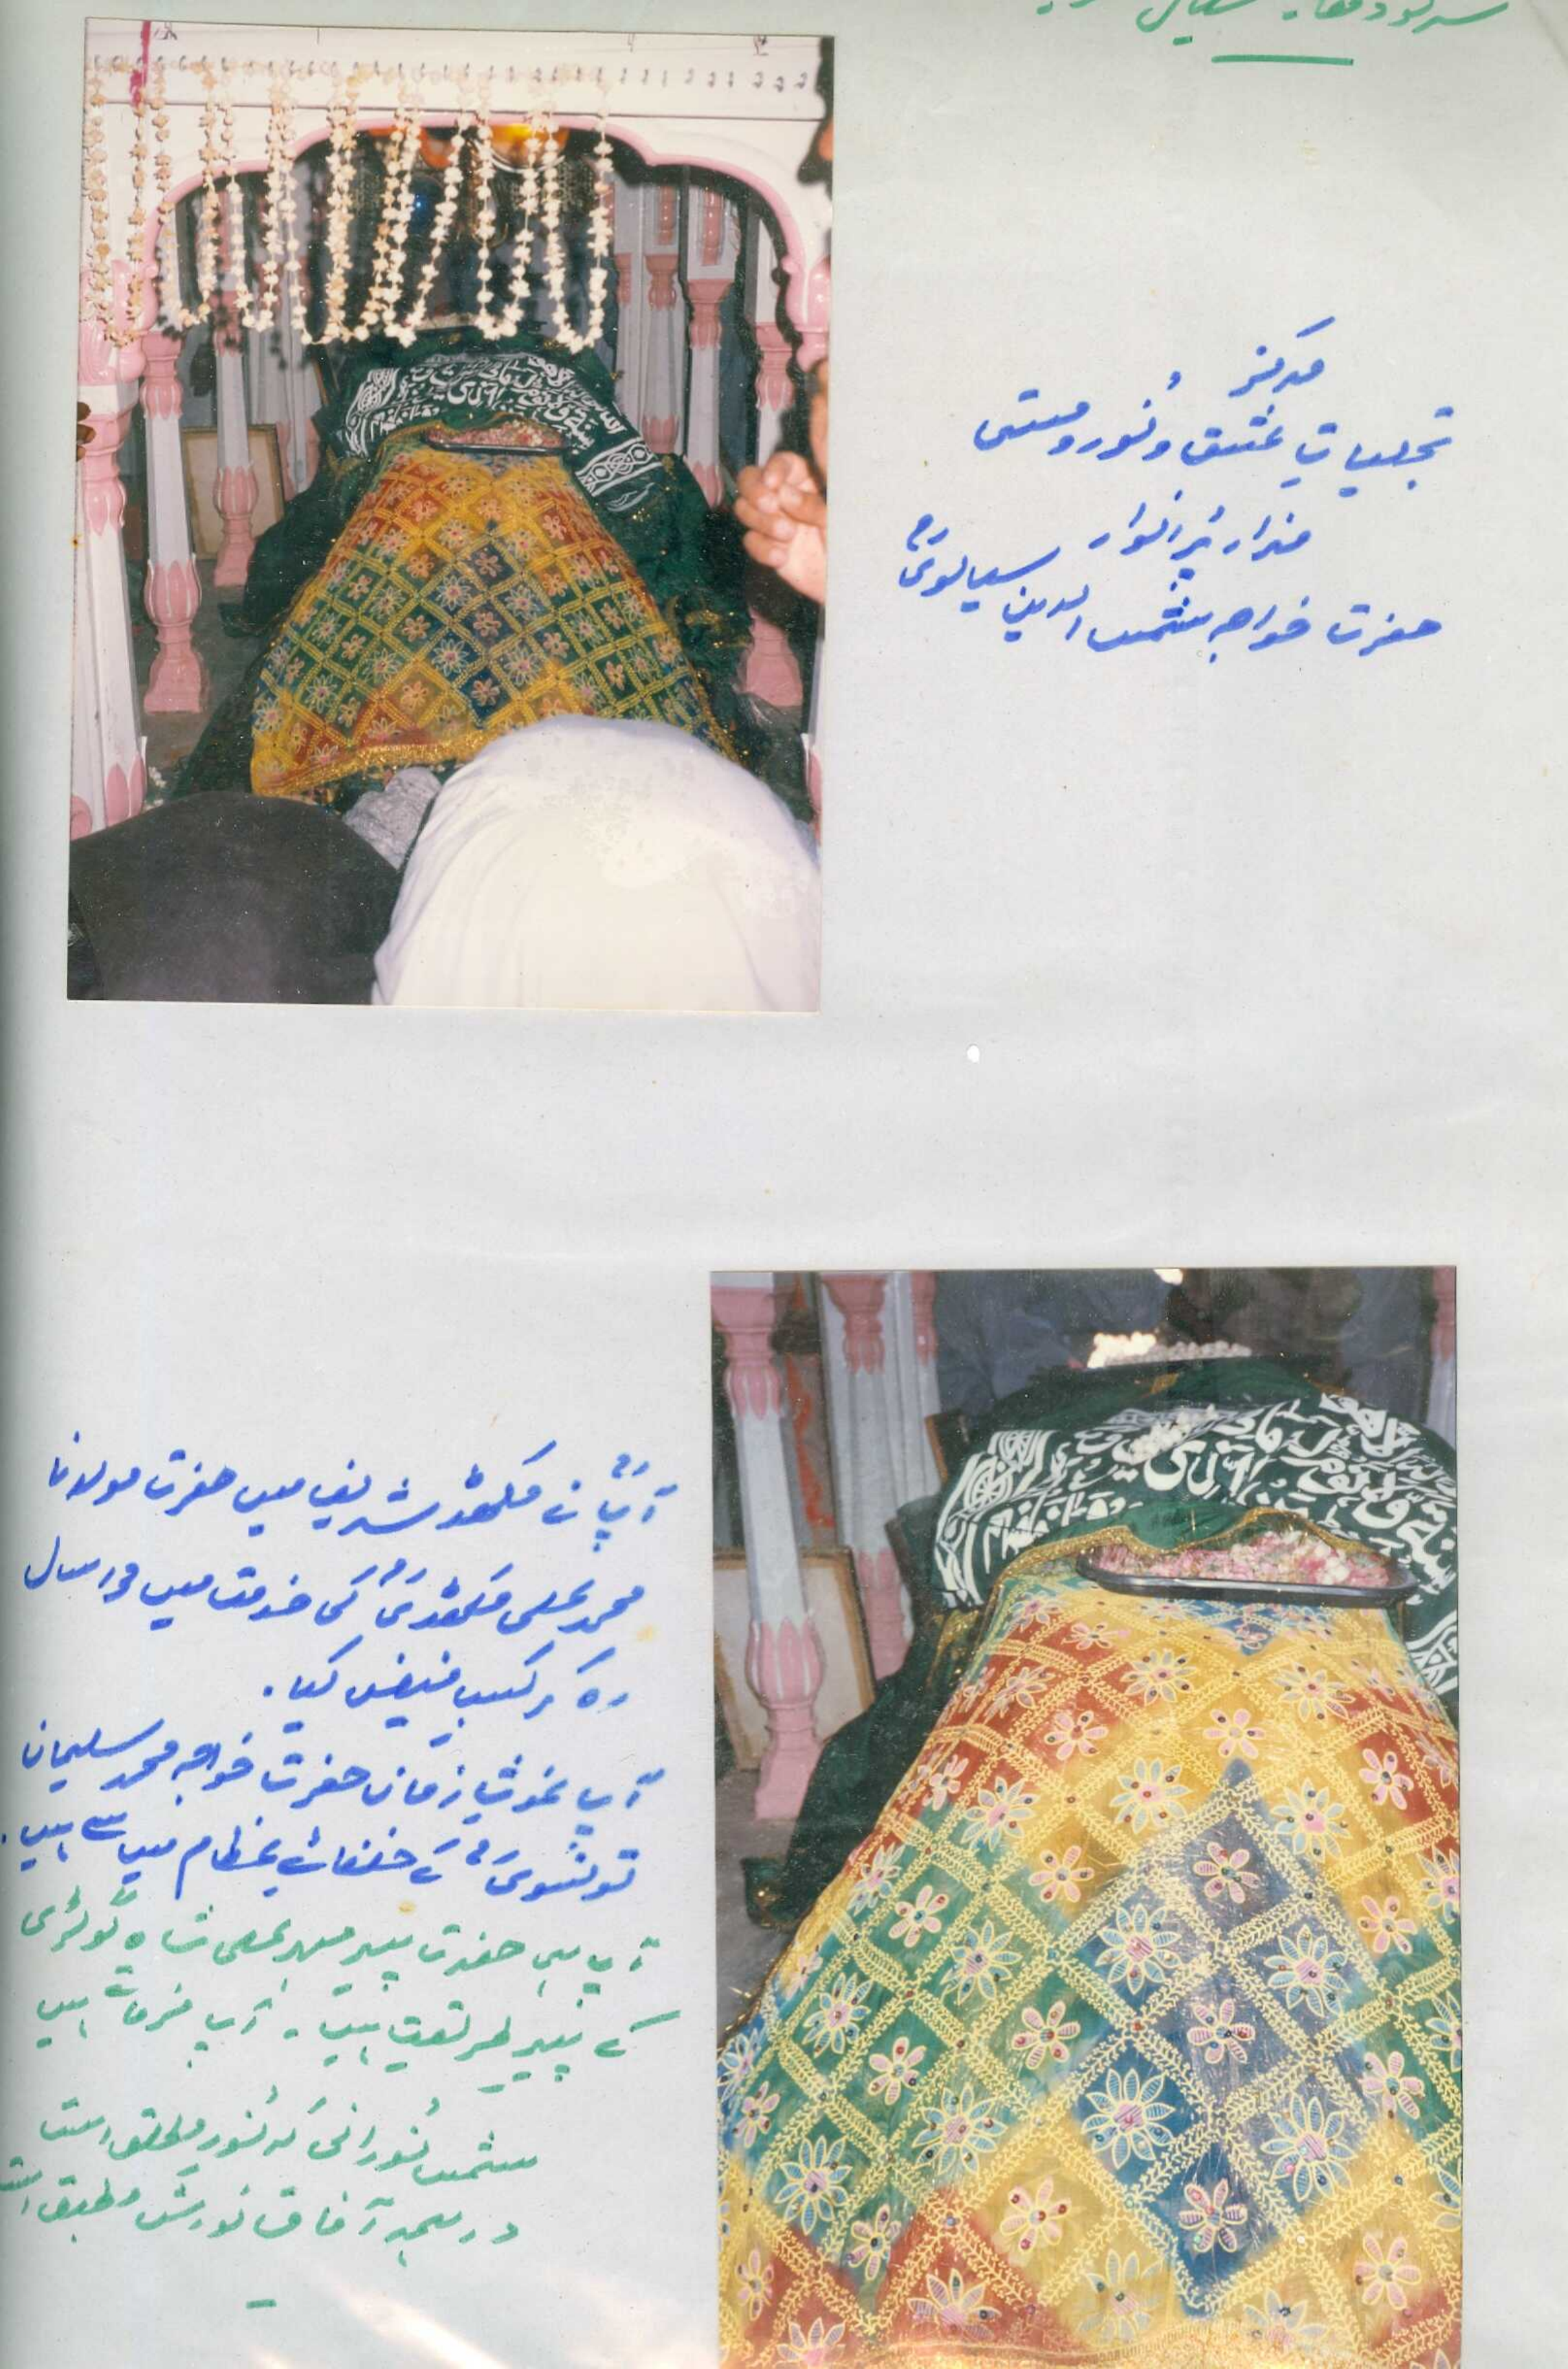 مرکز
تجلیاتِ عشق و نور و مستی
مزار پُر انوار
حضرت خواجہ شمس الدین سیالویؒ
آپؒ نے مکھڈ شریف میں حضرت مولانا
محمد علی مکھڈیؒ کی خدمت میں سال
رہ کر کسبِ فیض کیا.
آپ غوثِ زماں حضرت خواجہ محمد سلیمان
تونسویؒ کے خلفائے عظام میں سے ہیں.
آپ ہی حضرت پیر مہر علی شاہ گولڑی
کے پیرِ طریقت ہیں۔ آپ فرماتے ہیں
شمس نورانی کہ نورِ مطلق است
در ہمہ آفاق نورش مطبق است